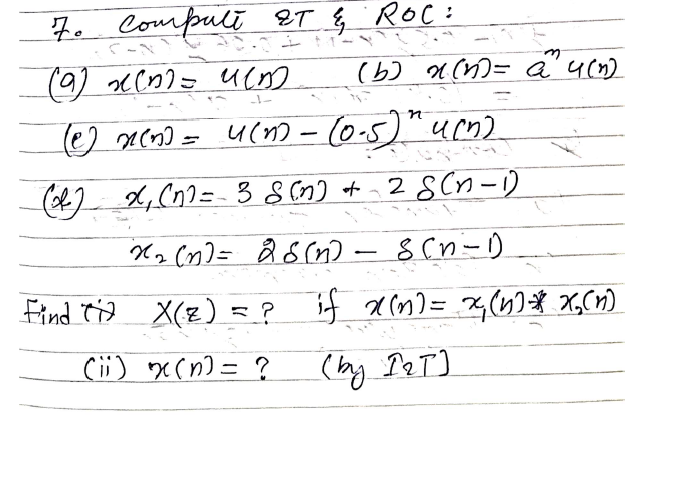 7. Compute ZT & ROC:
(a) x(n) = u(n) (b) x(n) = a^n u(n)
(c) x(n) = u(n) - (0.5)^n u(n)
(d) x₁(n) = 3 δ(n) + 2 δ(n-1)
x₂(n) = 2δ(n) - δ(n-1)
Find (i) X(z) = ? if x(n) = x₁(n) * x₂(n)
(ii) x(n) = ? (by IZT]